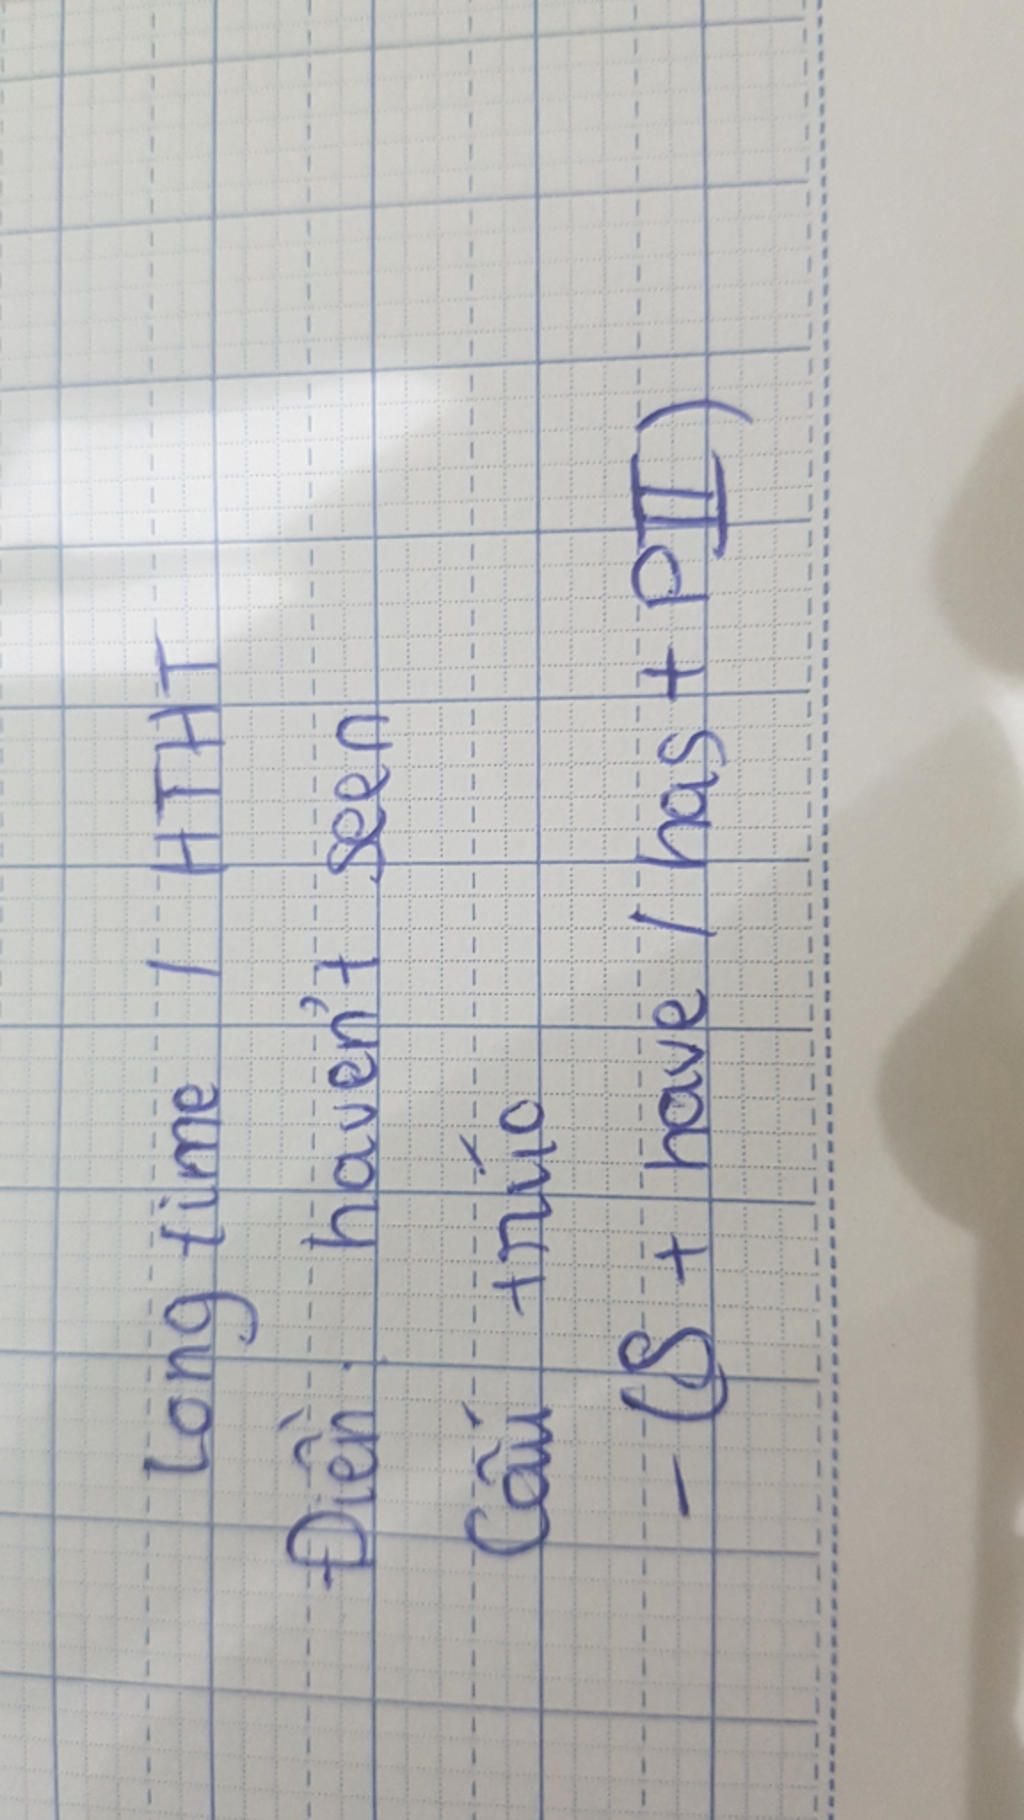 Long time / HTHT
Điền : haven't seen
Cấu trúc
- (S + have / has + PII)